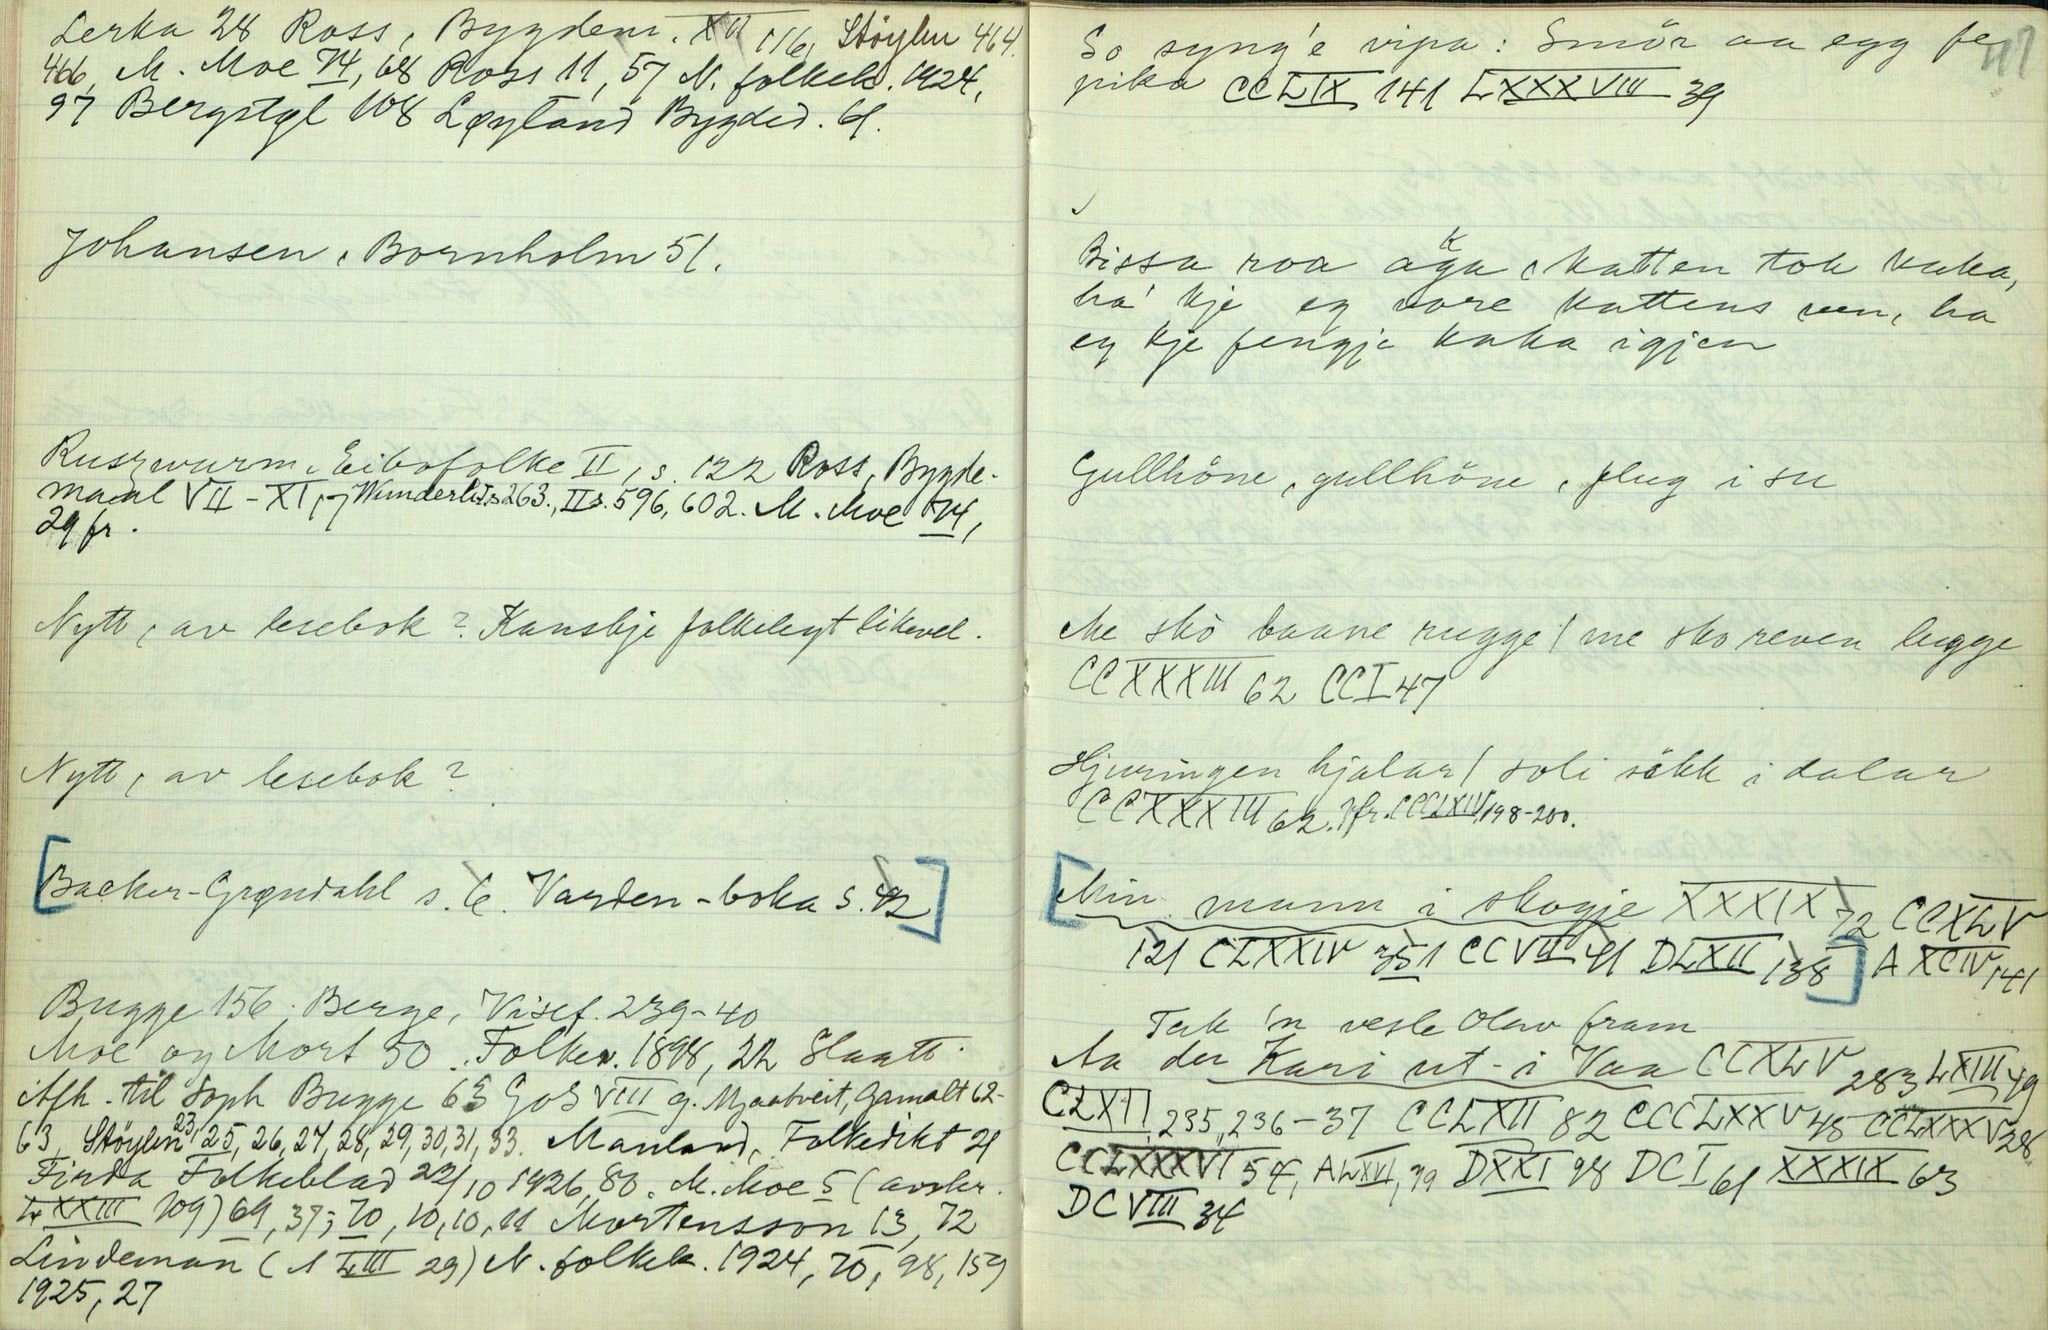 Lerka 28 Ross, Bygdem. XII 116, Støylen 464.
466, M. Moe 74, 68 Ross 11, 57 N. folkek. 1924,
97 Bergstøl 108 Løyland Bygded. 61.
Johansen, Bornholm 51.
Ruszwurm, Eibofolke II, s. 122 Ross, Bygde-
maal VII-XI, Wunderli. I s 263., II s. 596, 602. M. Moe 74,
29 fr.
Nytt, av lesebok? Kanskje folkelegt likevel.
Nytt, av lesebok?
[Backer-Grøndahl s. 6. Varden-boka s. 42]
Bugge 156. Berge, Visef. 239-40
Moe og Mort 50. Folkev. 1898, 22 Slaatt
Afh. til Soph Bugge 65 GoS VIII 9. Mjaatveit, Gamalt 62-
63, Støylen 23, 25, 26, 27, 28, 29, 30, 31, 33. Manland, Folkedikt 21
Firda Folkeblad 22/10 1926, 80. M. Moe 5 (avskr.
LXXIII 109) 69, 37; 70, 10, 10, 11 Mortensson 13, 72
Lindeman (A LIII 29) N. folkek. 1924, 70, 98, 159
1925, 27
47
So syng'e vipa: Smör aa egg fe
pika CCLIX 141 LXXXVIII 39
Bissa roa åga, katten tok kaka,
k
ha' kje eg vore kattens ven, ha
eg kje fengje kaka igjen
Gullhöne, gullhöne, flug i su
Me skò baane rugge / me sko reven lugge
CCXXXIII 62 CCI 47
Hjuringen hjalar / soli sökk i dalar
CCXXXIII 62. Jfr. CCCLXIV 198-200.
[Min mann i skogje XXXIX 72 CCXLV
121 CLXXIV 351 CCVII 41 DLXII 138] A XCIV 141
Tak 'n vesle Olav fram
Aa der Kari ut-i Vaa CCXLV 283 LXIII 49
CLXII, 235, 236-37 CCLXII 82 CCCLXXV 48 CCLXXXV 28
CCLXXXVI 54, A LXVI, 79 DXXI 98 DCI 61 XXXIX 63
DCVIII 34